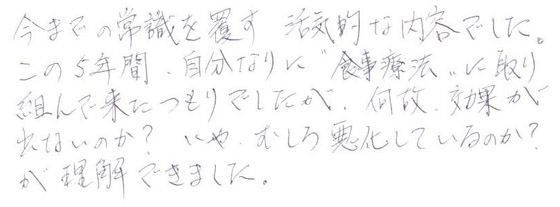 今までの常識を覆す 活気的な内容でした。
この5年間、自分なりに〝食事療法〟に取り
組んで来たつもりでしたが、何故、効果が
出ないのか? いや、むしろ悪化しているのか?
が理解できました。